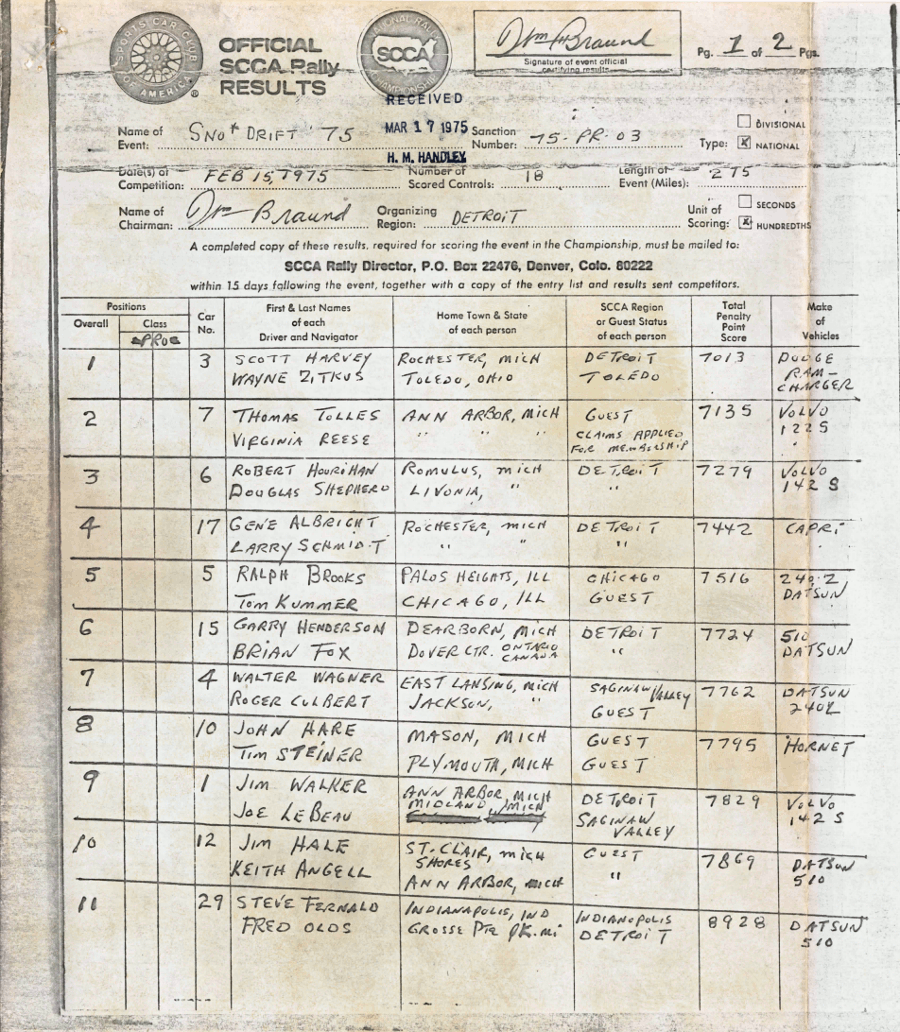 SPORTS CAR CLUB OF AMERICA
OFFICIAL
SCCA Rally
RESULTS
NATIONAL RALLY CHAMPIONSHIP
SCCA
Wm Braund
Signature of event official
certifying results
Pg. 1 of 2 Pgs.
RECEIVED
MAR 17 1975
H. M. HANDLEY
Name of Event: SNO* DRIFT '75
Sanction Number: 75-PR-03
Type: DIVISIONAL
X NATIONAL
Date(s) of Competition: FEB 15, 1975
Number of Scored Controls: 18
Length of Event (Miles): 275
Name of Chairman: Wm Braund
Organizing Region: DETROIT
Unit of Scoring: SECONDS
X HUNDREDTHS
A completed copy of these results, required for scoring the event in the Championship, must be mailed to:
SCCA Rally Director, P.O. Box 22476, Denver, Colo. 80222
within 15 days following the event, together with a copy of the entry list and results sent competitors.
Positions
Overall
Class
PRO
Car No.
First & Last Names of each Driver and Navigator
Home Town & State of each person
SCCA Region or Guest Status of each person
Total Penalty Point Score
Make of Vehicles
1 3 SCOTT HARVEY ROCHESTER, MICH DETROIT 7013 DODGE
WAYNE ZITKUS TOLEDO, OHIO TOLEDO RAM-
CHARGER
2 7 THOMAS TOLLES ANN ARBOR, MICH GUEST 7135 VOLVO
VIRGINIA REESE " " " CLAIMS APPLIED 122S
FOR MEMBERSHIP
3 6 ROBERT HOURIHAN ROMULUS, MICH DETROIT 7279 VOLVO
DOUGLAS SHEPHERD LIVONIA, " " 142 S
4 17 GENE ALBRIGHT ROCHESTER, MICH DETROIT 7442 CAPRI
LARRY SCHMIDT " " "
5 5 RALPH BROOKS PALOS HEIGHTS, ILL CHICAGO 7516 240-Z
TOM KUMMER CHICAGO, ILL GUEST DATSUN
6 15 GARRY HENDERSON DEARBORN, MICH DETROIT 7724 510
BRIAN FOX DOVER CTR. ONTARIO CANADA " DATSUN
7 4 WALTER WAGNER EAST LANSING, MICH SAGINAW VALLEY 7762 DATSUN
ROGER CULBERT JACKSON, " GUEST 240Z
8 10 JOHN HARE MASON, MICH GUEST 7795 HORNET
TIM STEINER PLYMOUTH, MICH GUEST
9 1 JIM WALKER ANN ARBOR, MICH DETROIT 7829 VOLVO
JOE LEBEAU MIDLAND, MICH SAGINAW 142 S
VALLEY
10 12 JIM HALE ST. CLAIR, MICH GUEST 7869 DATSUN
SHORES
KEITH ANGELL ANN ARBOR, MICH " 510
11 29 STEVE FERNALD INDIANAPOLIS, IND INDIANOPOLIS 8928 DATSUN
FRED OLDS GROSSE PTE PK. MI DETROIT 510